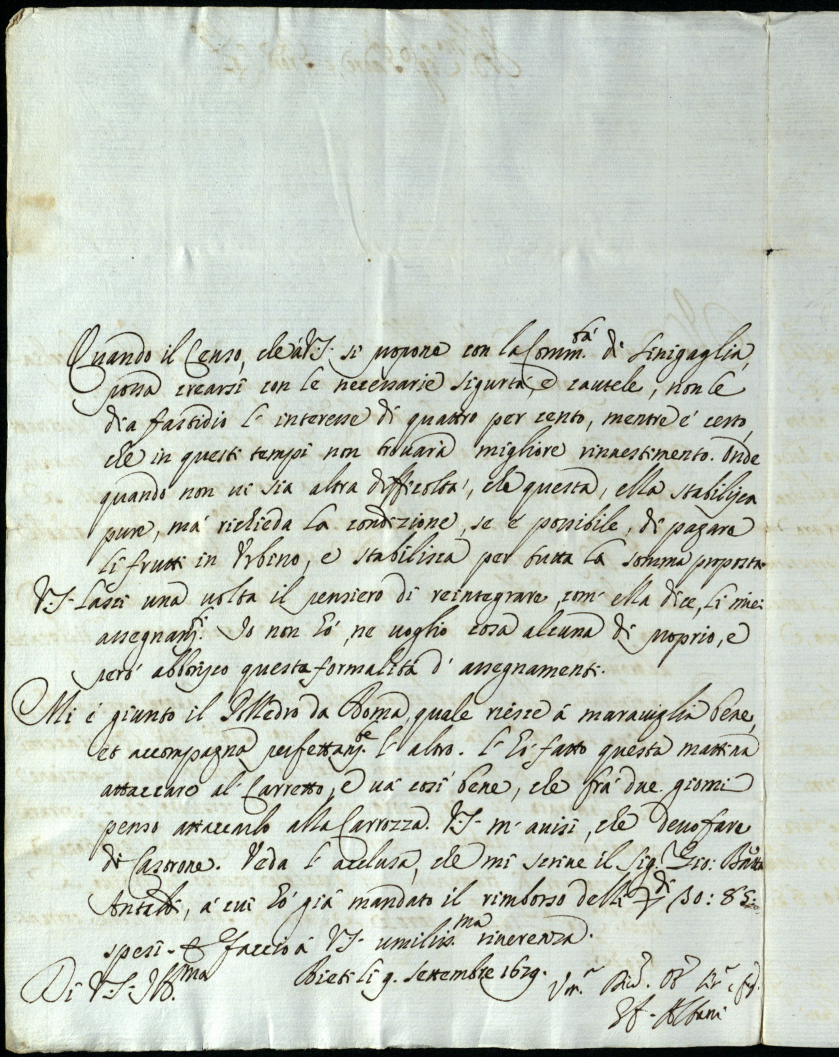 Quando il Censo, che à V.S. si propone con la Comm.tà di Sinigaglia,
possa crearsi con le necessarie sigurtà, e cautele, non le
dia fastidio l'interesse di quattro per cento, mentre è certo,
che in questi tempi non trovarà migliore rinuestimento. Onde
quando non ui sia altra difficoltà, che questa, ella stabilisca
pure, mà richieda la condizione, se è possibile, di pagare
li frutti in Urbino, e stabilisca per tutta la somma proposta.
V.S. lasci una uolta il pensiero di reintegrare, com' ella dice, li miei
assegnam.ti Io non hò, ne uoglio cosa alcuna di proprio, e
però abborisco questa formalità d' assegnamenti.
Mi è giunto il Polledro da Roma, quale riesce à marauiglia bene,
et accompagna perfettam.te l' altro. l' hò fatto questa mattina
attaccare al Carretto, e uà così bene, che frà due giorni
penso attaccarlo alla Carrozza. V.S. m' auisi, che deuo fare
di Casorone. Veda l' acclusa, che mi scriue il Sig.r Gio: Batta
Antaldi, à cui hò già mandato il rimborso delli di 30: 85:
spesi. Et faccio à V.S. umiliss.ma riuerenza.
Di V.S. Ill.ma Rieti li 9. Settembre 1679.
Um.o Diu. Ob. Ser.r e fig.
Albani